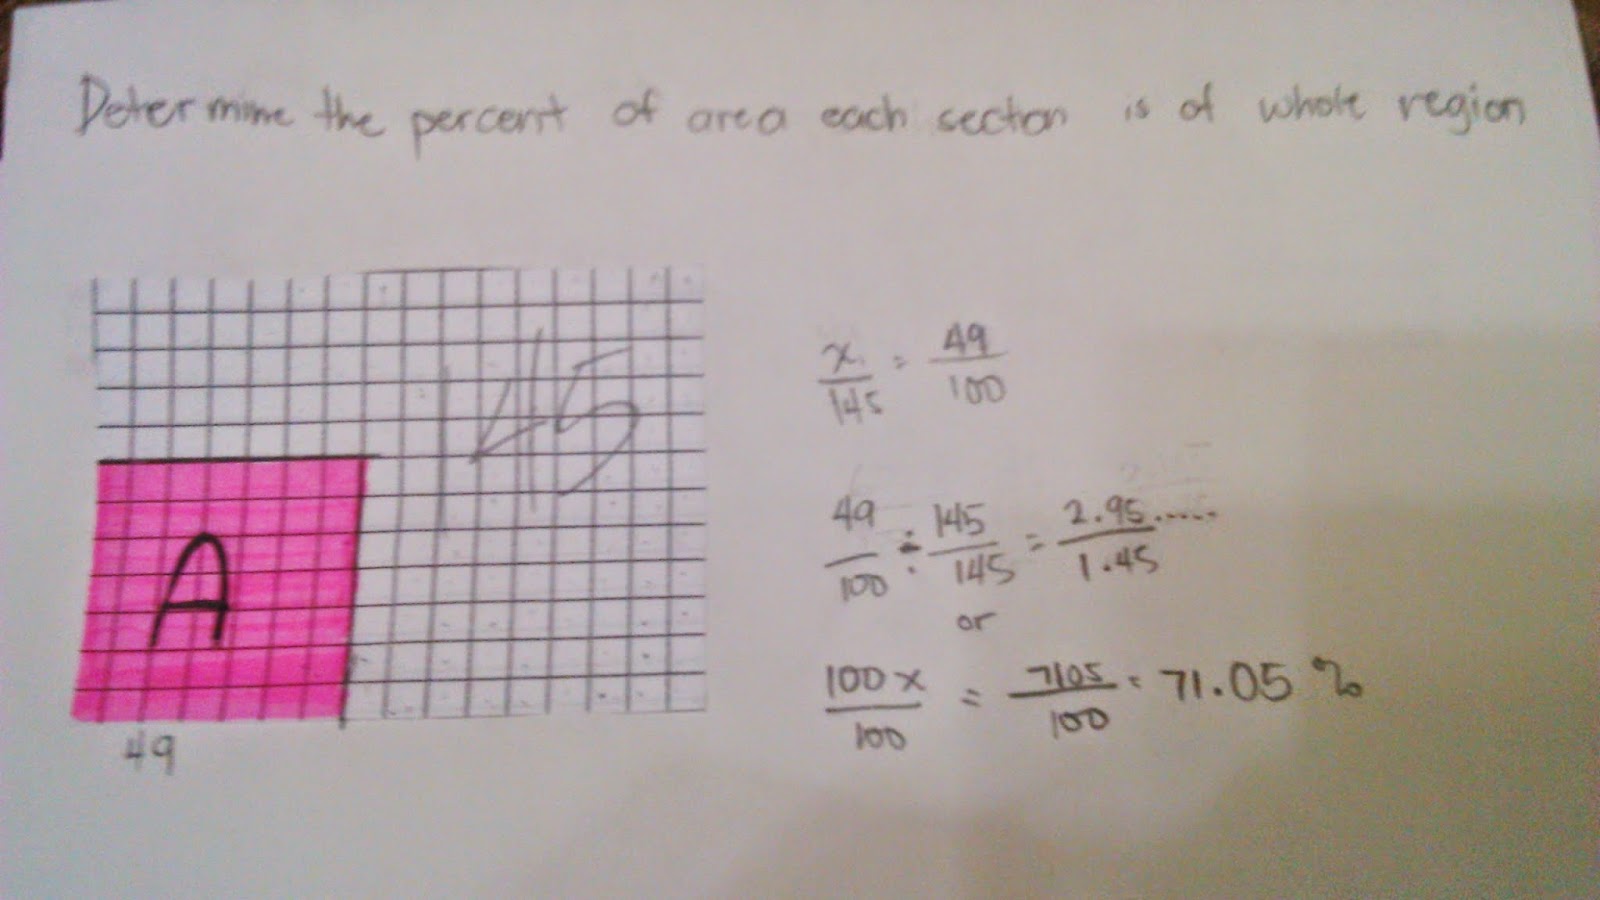 Determine the percent of area each section is of whole region
145
A
49
x/145 = 49/100
49/100 ÷ 145/145 = 2.95...../1.45
or
100x/100 = 7105/100 = 71.05 %